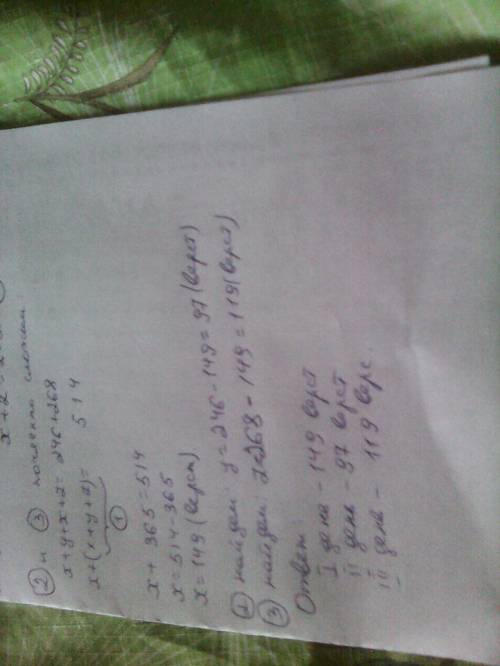 ② и ③ почленно сложим:
x+y+x+z=246+268
x+(x+y+z)= 514
①
x+ 365=514
x=514-365
x=149 (верст)
② найдём: y=246-149=97 (верст)
③ найдём: z=268-149=119 (верст)
Ответ:
I день - 149 верст
II день - 97 верст
III день - 119 верс.